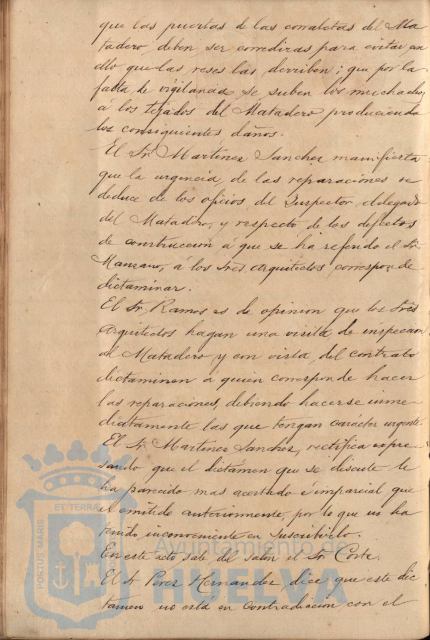 que las puertas de las corraletas del Ma-
tadero, deben ser corredizas para evitar con
ello que las reses las derriben; que por la
falta de vigilancia se suben los muchachos
á los tejados del Matadero produciendo
los consiguientes daños.
El Sr. Martinez Sanchez manifiesta
que la urgencia de las reparaciones se
deduce de los oficios del Inspector delegado
del Matadero, y respecto de los defectos
de construccion á que se ha referido el Sr.
Manzano, á los Sres Arquitectos, corresponde
dictaminar.
El Sr. Ramos es de opinion que los Sres
Arquitectos hagan una visita de inspeccion
al Matadero y con vista del contrato
dictaminen á quien corresponde hacer
las reparaciones, debiendo hacerse inme-
diatamente las que tengan carácter urgente.
El Sr. Martinez Sanchez, rectifica expre-
sando que el dictamen que se discute le
ha parecido mas acertado é imparcial que
el emitido anteriormente, por lo que no ha
tenido inconveniente en suscribirlo.
En este acto sale del salon el Sr. Corte.
El Sr. Perez Hernandez dice que este dic-
tamen no está en contradiccion con el
PORTUS MARIS ET TERRAE
Ayuntamiento de
HUELVA